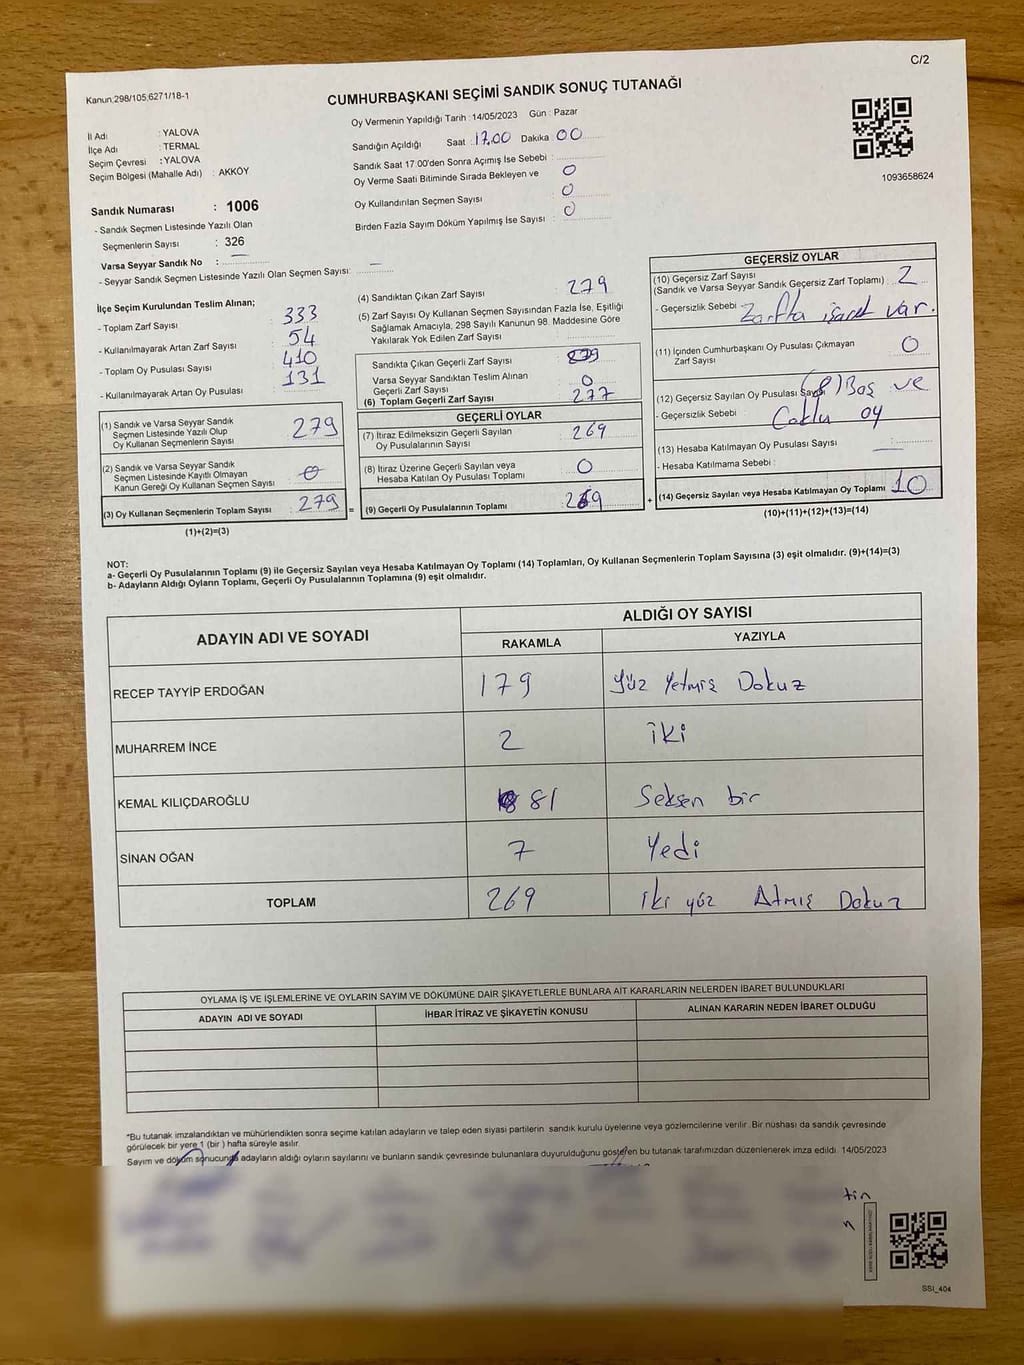 C/2
Kanun:298/105,6271/18-1
CUMHURBAŞKANI SEÇİMİ SANDIK SONUÇ TUTANAĞI
İl Adı : YALOVA
İlçe Adı : TERMAL
Seçim Çevresi : YALOVA
Seçim Bölgesi (Mahalle Adı) : AKKÖY
Sandık Numarası : 1006
- Sandık Seçmen Listesinde Yazılı Olan
Seçmenlerin Sayısı : 326
Varsa Seyyar Sandık No : —
- Seyyar Sandık Seçmen Listesinde Yazılı Olan Seçmen Sayısı: —
Oy Vermenin Yapıldığı Tarih : 14/05/2023 Gün : Pazar
Sandığın Açıldığı Saat : 17.00 Dakika 00
Sandık Saat 17:00'den Sonra Açımış İse Sebebi :
Oy Verme Saati Bitiminde Sırada Bekleyen ve 0
Oy Kullandırılan Seçmen Sayısı 0
Birden Fazla Sayım Döküm Yapılmış İse Sayısı : 0
1093658624
İlçe Seçim Kurulundan Teslim Alınan;
- Toplam Zarf Sayısı 333
- Kullanılmayarak Artan Zarf Sayısı 54
- Toplam Oy Pusulası Sayısı 410
- Kullanılmayarak Artan Oy Pusulası 131
(1) Sandık ve Varsa Seyyar Sandık
Seçmen Listesinde Yazılı Olup
Oy Kullanan Seçmenlerin Sayısı 279
(2) Sandık ve Varsa Seyyar Sandık
Seçmen Listesinde Kayıtlı Olmayan
Kanun Gereği Oy Kullanan Seçmen Sayısı : 0
(3) Oy Kullanan Seçmenlerin Toplam Sayısı : 279 =
(1)+(2)=(3)
(4) Sandıktan Çıkan Zarf Sayısı : 279
(5) Zarf Sayısı Oy Kullanan Seçmen Sayısından Fazla İse, Eşitliği
Sağlamak Amacıyla, 298 Sayılı Kanunun 98. Maddesine Göre
Yakılarak Yok Edilen Zarf Sayısı :
Sandıkta Çıkan Geçerli Zarf Sayısı
Varsa Seyyar Sandıktan Teslim Alınan
Geçerli Zarf Sayısı : 0
(6) Toplam Geçerli Zarf Sayısı : 277
GEÇERLİ OYLAR
(7) İtiraz Edilmeksizin Geçerli Sayılan
Oy Pusulalarının Sayısı : 269
(8) İtiraz Üzerine Geçerli Sayılan veya
Hesaba Katılan Oy Pusulası Toplamı : 0
(9) Geçerli Oy Pusulalarının Toplamı : 269 +
GEÇERSİZ OYLAR
(10) Geçersiz Zarf Sayısı
(Sandık ve Varsa Seyyar Sandık Geçersiz Zarf Toplamı) : 2
- Geçersizlik Sebebi : Zarfta işaret var.
(11) İçinden Cumhurbaşkanı Oy Pusulası Çıkmayan
Zarf Sayısı : 0
(12) Geçersiz Sayılan Oy Pusulası Sayısı (8) Boş ve
- Geçersizlik Sebebi : Çoklu oy
(13) Hesaba Katılmayan Oy Pusulası Sayısı : —
- Hesaba Katılmama Sebebi :
(14) Geçersiz Sayılan veya Hesaba Katılmayan Oy Toplamı : 10
(10)+(11)+(12)+(13)=(14)
NOT:
a- Geçerli Oy Pusulalarının Toplamı (9) ile Geçersiz Sayılan veya Hesaba Katılmayan Oy Toplamı (14) Toplamları, Oy Kullanan Seçmenlerin Toplam Sayısına (3) eşit olmalıdır. (9)+(14)=(3)
b- Adayların Aldığı Oyların Toplamı, Geçerli Oy Pusulalarının Toplamına (9) eşit olmalıdır.
ADAYIN ADI VE SOYADI
ALDIĞI OY SAYISI
RAKAMLA YAZIYLA
RECEP TAYYİP ERDOĞAN 179 Yüz Yetmiş Dokuz
MUHARREM İNCE 2 iki
KEMAL KILIÇDAROĞLU 81 Seksen bir
SİNAN OĞAN 7 Yedi
TOPLAM 269 iki yüz Atmış Dokuz
OYLAMA İŞ VE İŞLEMLERİNE VE OYLARIN SAYIM VE DÖKÜMÜNE DAİR ŞİKAYETLERLE BUNLARA AİT KARARLARIN NELERDEN İBARET BULUNDUKLARI
ADAYIN ADI VE SOYADI İHBAR İTİRAZ VE ŞİKAYETİN KONUSU ALINAN KARARIN NEDEN İBARET OLDUĞU
*Bu tutanak imzalandıktan ve mühürlendikten sonra seçime katılan adayların ve talep eden siyasi partilerin sandık kurulu üyelerine veya gözlemcilerine verilir. Bir nüshası da sandık çevresinde
görülecek bir yere 1 (bir) hafta süreyle asılır.
Sayım ve döküm sonucunda adayların aldığı oyların sayılarını ve bunların sandık çevresinde bulunanlara duyurulduğunu gösteren bu tutanak tarafımızdan düzenlenerek imza edildi. 14/05/2023
tin
n
SSI_404